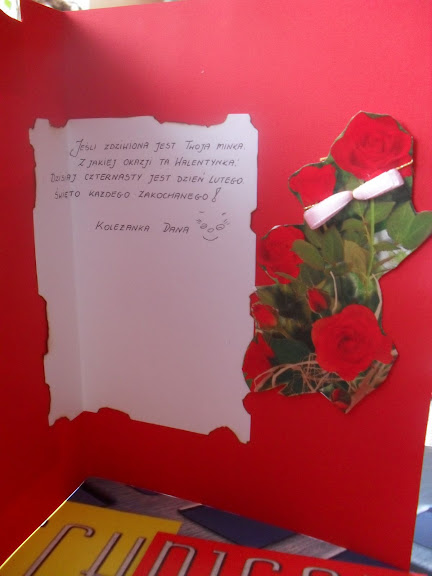 Jeśli zdziwiona jest Twoja minka,
z jakiej okazji ta Walentynka,
Dzisiaj czternasty jest dzień lutego
święto każdego zakochanego!
Koleżanka Dana